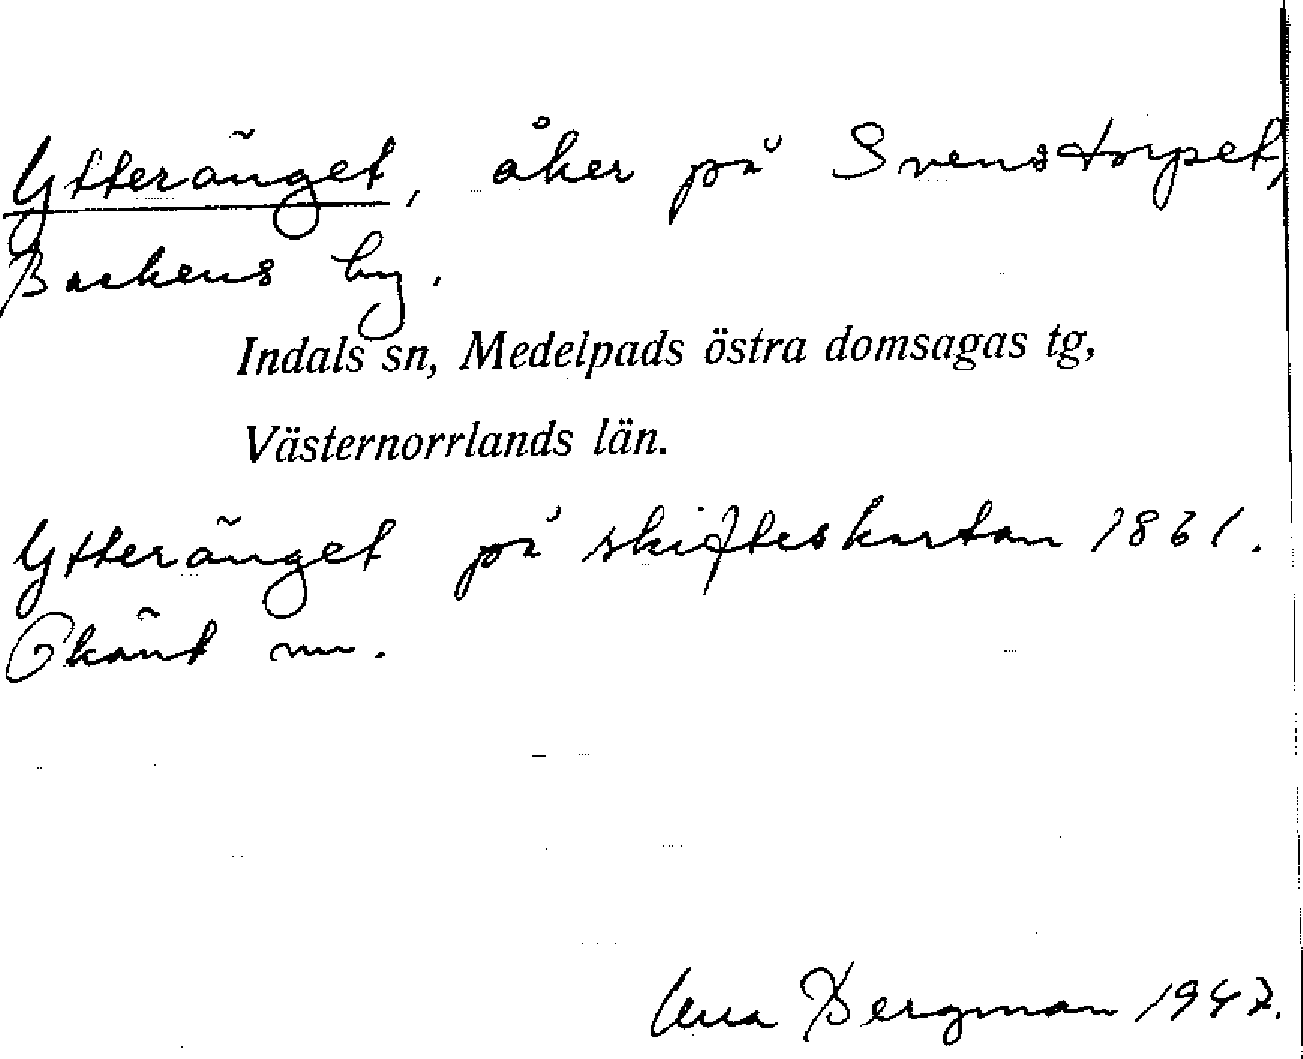 Ytteränget, åker på Svenstorpet,
Backens by.
Indals sn, Medelpads östra domsagas tg,
Västernorrlands län.
Ytteränget på skifteskartan 1861.
Okänt nu.
Bergman 1947.